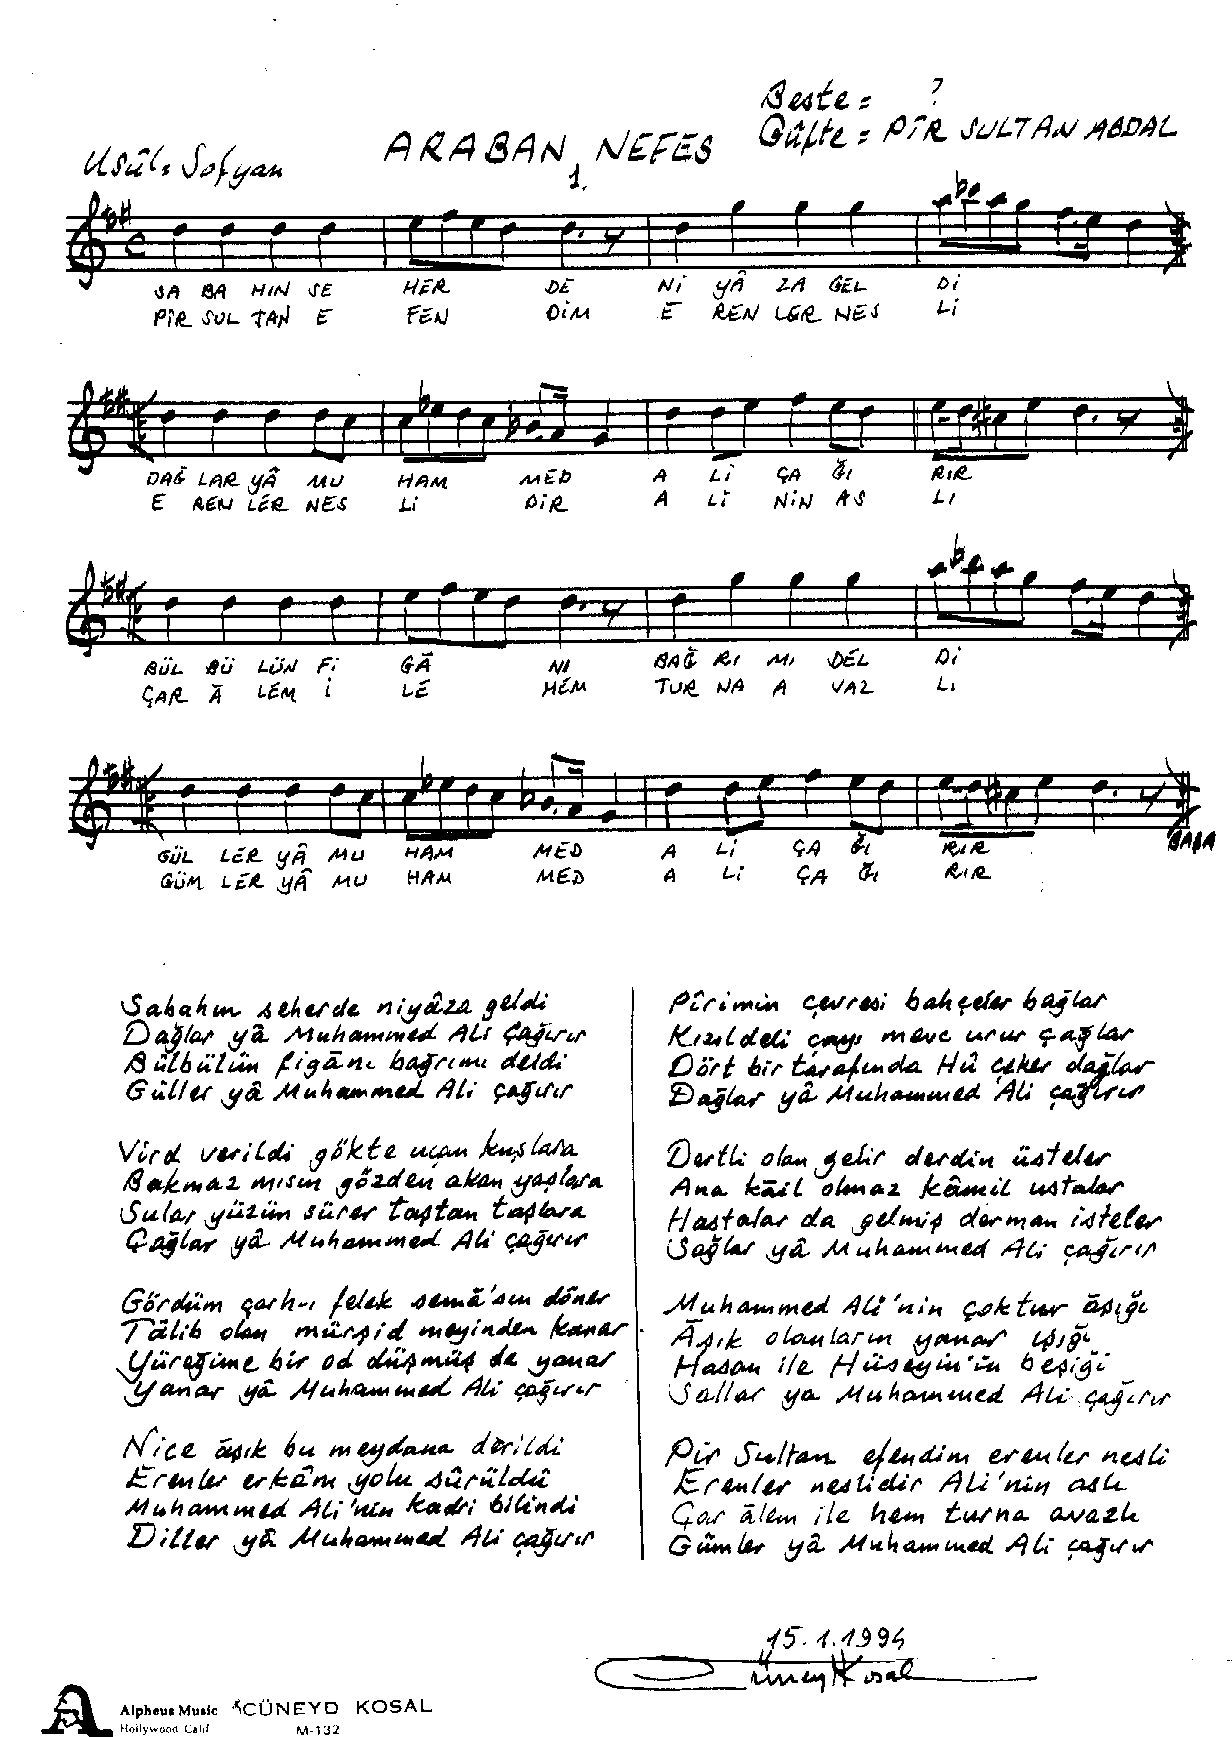 Beste = ?
Usûl: Sofyan
ARABAN NEFES
Güfte = PÎR SULTAN ABDAL
1.
SA BA HIN SE HER DE Nİ YÂ ZA GEL Dİ
PİR SUL TAN E FEN DİM E REN LER NES Lİ
DAĞ LAR YÂ MU HAM MED A Lİ ÇA ĞI RIR
E REN LER NES Lİ DİR A Lİ NİN AS LI
BÜL BÜ LÜN Fİ GĀ NI BAĞ RI MI DEL Dİ
ÇAR Ā LEM İ LE HEM TUR NA A VAZ LI
GÜL LER YÂ MU HAM MED A Lİ ÇA ĞI RIR
GÜM LER YÂ MU HAM MED A Lİ ÇA ĞI RIR
Sabahın seherde niyâza geldi
Dağlar yâ Muhammed Ali çağırır
Bülbülün figānı bağrımı deldi
Güller yâ Muhammed Ali çağırır
Vird verildi gökte uçan kuşlara
Bakmaz mısın gözden akan yaşlara
Sular yüzün sürer taştan taşlara
Çağlar yâ Muhammed Ali çağırır
Gördüm çarh-ı felek semā'sın döner
Tālib olan mürşid meyinden kanar
Yüreğime bir od düşmüş de yanar
Yanar yâ Muhammed Ali çağırır
Nice āşık bu meydana derildi
Erenler erkâm yolu sürüldü
Muhammed Ali'nin kadri bilindi
Diller yâ Muhammed Ali çağırır
Pîrimin çevresi bahçeler bağlar
Kızıldeli çayı mevc urur çağlar
Dört bir tarafında Hû çeker dağlar
Dağlar yâ Muhammed Ali çağırır
Dertli olan gelir derdin üsteler
Ana kāil olmaz kâmil ustalar
Hastalar da gelmiş derman isteler
Sağlar yâ Muhammed Ali çağırır
Muhammed Ali'nin çoktur āşığı
Āşık olanların yanar ışığı
Hasan ile Hüseyin'in beşiği
Sallar ya Muhammed Ali çağırır
Pir Sultan efendim erenler nesli
Erenler neslidir Ali'nin aslı
Çar ālem ile hem turna avazlı
Gümler yâ Muhammed Ali çağırır
15.1.1994
Cüneyd Kosal
Alpheus Music CÜNEYD KOSAL
Hollywood Calif M-132